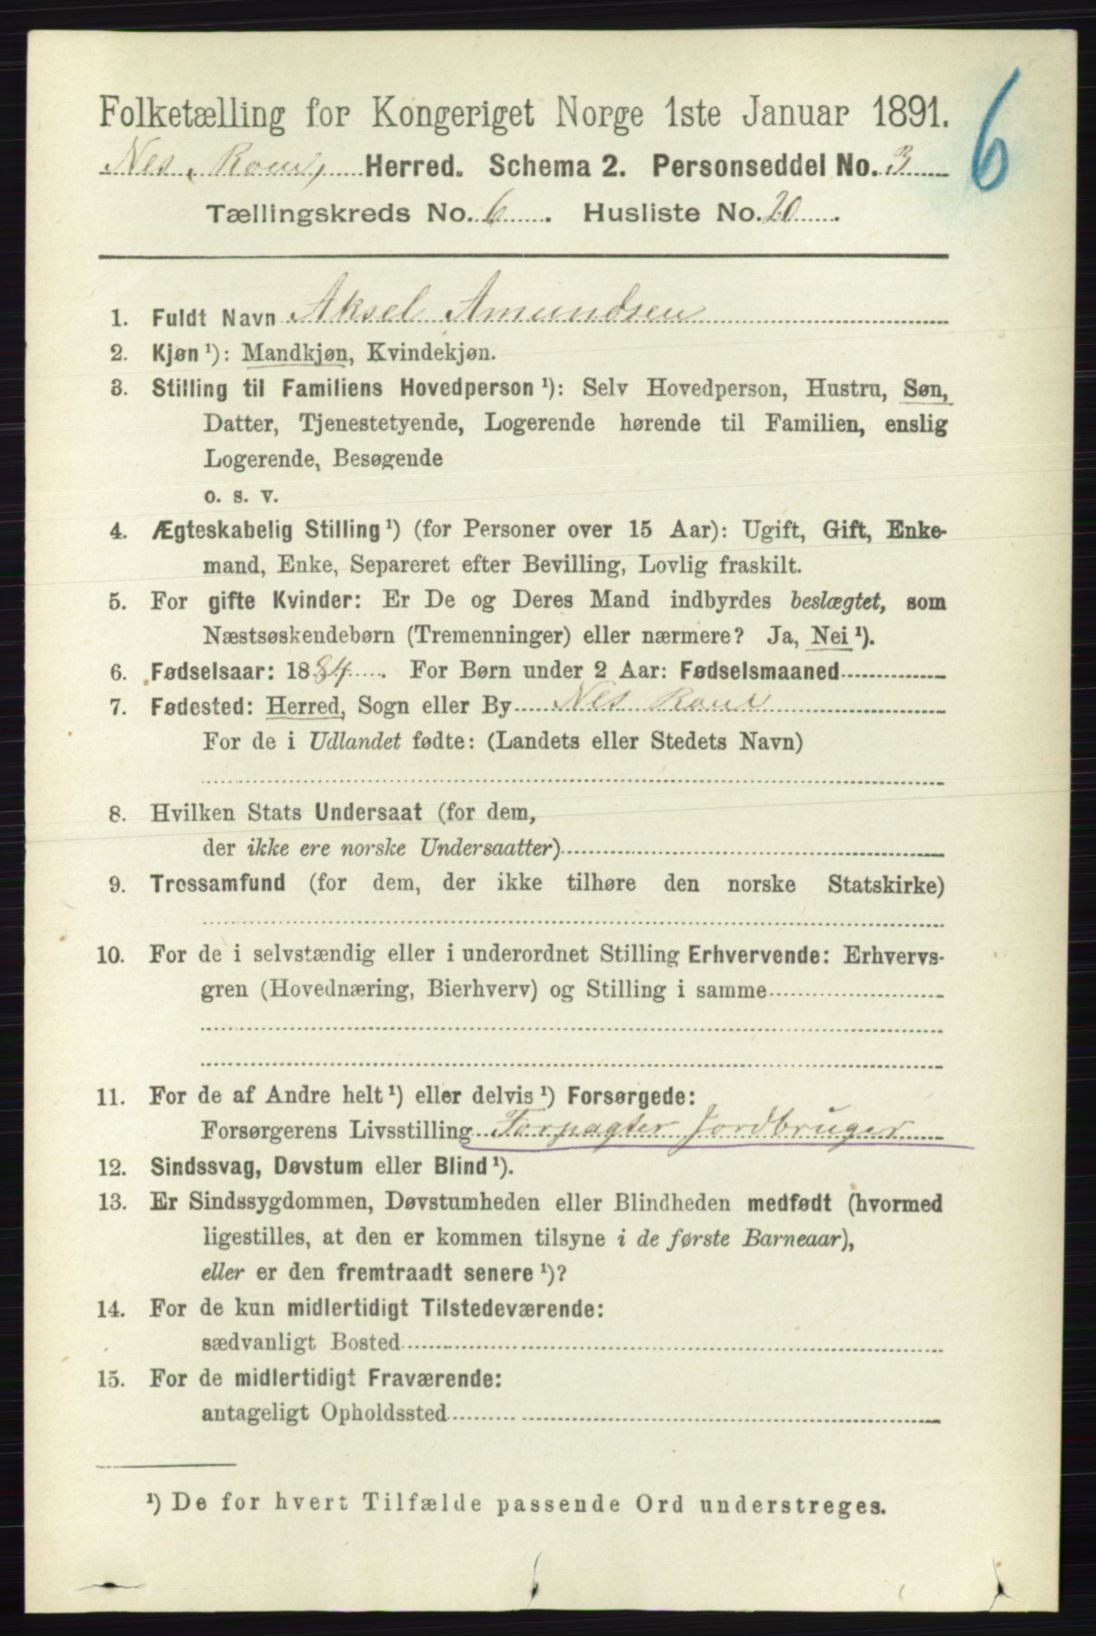 Folketælling for Kongeriget Norge 1ste Januar 1891.
6
Nes, Rom, Herred. Schema 2. Personseddel No. 3
Tællingskreds No. 6. Husliste No. 20.
1. Fuldt Navn Aksel Amundsen
2. Kjøn¹): Mandkjøn, Kvindekjøn.
3. Stilling til Familiens Hovedperson¹): Selv Hovedperson, Hustru, Søn,
Datter, Tjenestetyende, Logerende hørende til Familien, enslig
Logerende, Besøgende
o. s. v.
4. Ægteskabelig Stilling¹) (for Personer over 15 Aar): Ugift, Gift, Enke-
mand, Enke, Separeret efter Bevilling, Lovlig fraskilt.
5. For gifte Kvinder: Er De og Deres Mand indbyrdes beslægtet, som
Næstsøskendebørn (Tremenninger) eller nærmere? Ja, Nei¹).
6. Fødselsaar: 1884. For Børn under 2 Aar: Fødselsmaaned
7. Fødested: Herred, Sogn eller By Nes Rom
For de i Udlandet fødte: (Landets eller Stedets Navn)
8. Hvilken Stats Undersaat (for dem,
der ikke ere norske Undersaatter)
9. Trossamfund (for dem, der ikke tilhøre den norske Statskirke)
10. For de i selvstændig eller i underordnet Stilling Erhvervende: Erhvervs-
gren (Hovednæring, Bierhverv) og Stilling i samme
11. For de af Andre helt¹) eller delvis¹) Forsørgede:
Forsørgerens Livsstilling Forpagter Jordbruger
12. Sindssvag, Døvstum eller Blind¹).
13. Er Sindssygdommen, Døvstumheden eller Blindheden medfødt (hvormed
ligestilles, at den er kommen tilsyne i de første Barneaar),
eller er den fremtraadt senere¹)?
14. For de kun midlertidigt Tilstedeværende:
sædvanligt Bosted
15. For de midlertidigt Fraværende:
antageligt Opholdssted
¹) De for hvert Tilfælde passende Ord understreges.